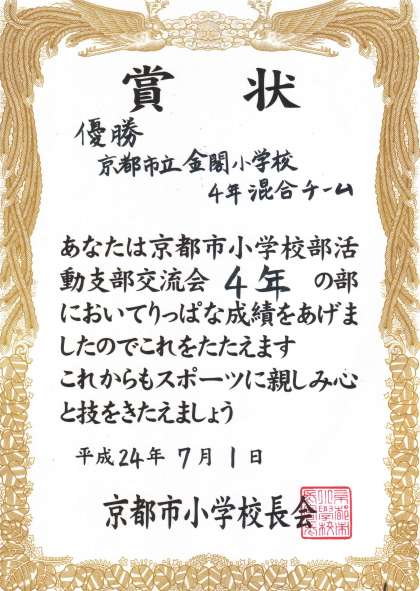 賞状
優勝
京都市立金閣小学校
4年混合チーム
あなたは京都市小学校部活
動支部交流会 4年 の部
においてりっぱな成績をあげま
したのでこれをたたえます
これからもスポーツに親しみ心
と技をきたえましょう
平成24年7月1日
京都市小学校長会